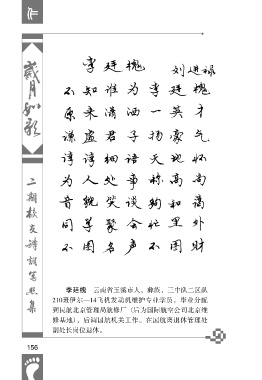 作
岁月如歌
二期校友诗词笔照集
李廷槐
刘进禄
不知谁为李廷槐
原来潇洒一英才
谦虚君子扬豪气
谆谆细语天地怀
为人处事称高尚
音貌笑谈夠和蔼
同学聚会忙里外
不图名声不图财
李廷槐 云南省玉溪市人，彝族，三中队二区队
210班伊尔—14飞机发动机维护专业学员，毕业分配
到民航北京管理局航修厂（后为国际航空公司北京维
修基地），后调国航机关工作，在民航离退休管理处
副处长岗位退休。
156